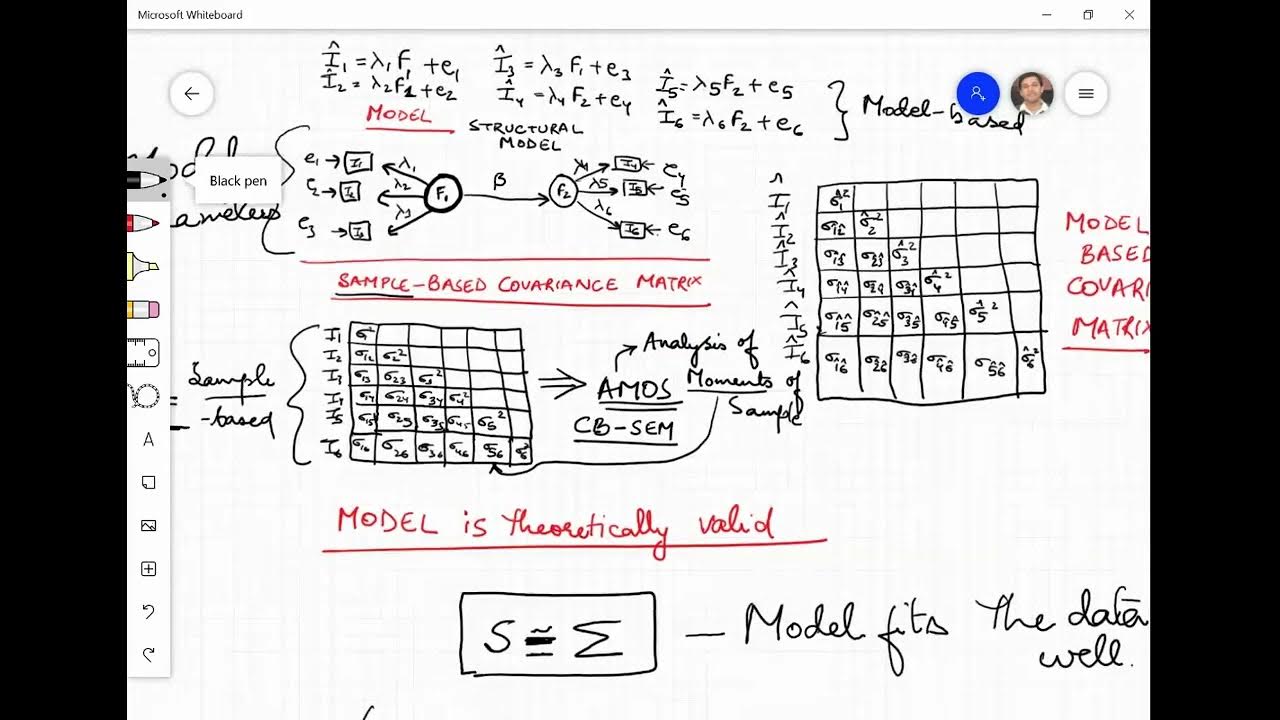 Microsoft Whiteboard
Î₁ = λ₁F₁ + e₁
Î₂ = λ₂F₁ + e₂
Î₃ = λ₃ F₁ + e₃
Î₄ = λ₄ F₂ + e₄
Î₅ = λ₅F₂ + e₅
Î₆ = λ₆ F₂ + e₆
} Model-based
MODEL
STRUCTURAL
MODEL
Black pen
e₁ → I₁ λ₁
I₂ λ₂
e₃ → I₃ λ₃
F₁ β F₂
λ₄ I₄ ← e₄
λ₅ I₅ ← e₅
λ₆ I₆ ← e₆
SAMPLE-BASED COVARIANCE MATRIX
I₁ σ²
I₂ σ₁₂ σ₂²
I₃ σ₁₃ σ₂₃ σ₃²
I₄ σ₁₄ σ₂₄ σ₃₄ σ₄²
I₅ σ₁₅ σ₂₅ σ₃₅ σ₄₅ σ₅²
I₆ σ₁₆ σ₂₆ σ₃₆ σ₄₆ σ₅₆ σ₆²
= Sample
-based
Analysis of
AMOS Moments of
Sample
CB-SEM
Î₁ σ̂₁²
Î₂ σ₁̂₂̂ σ̂₂²
Î₃ σ₁̂₃̂ σ₂̂₃̂ σ̂₃²
Î₄ σ₁̂₄̂ σ₂̂₄̂ σ₃̂₄̂ σ̂₄²
Î₅ σ₁̂₅̂ σ₂̂₅̂ σ₃̂₅̂ σ₄̂₅̂ σ̂₅²
Î₆ σ₁̂₆̂ σ₂̂₆̂ σ₃̂₆̂ σ₄̂₆̂ σ₅̂₆̂ σ̂₆²
MODEL
BASED
COVARI
MATRIX
MODEL is theoretically valid
S ≅ Σ — Model fits the data
well.
A